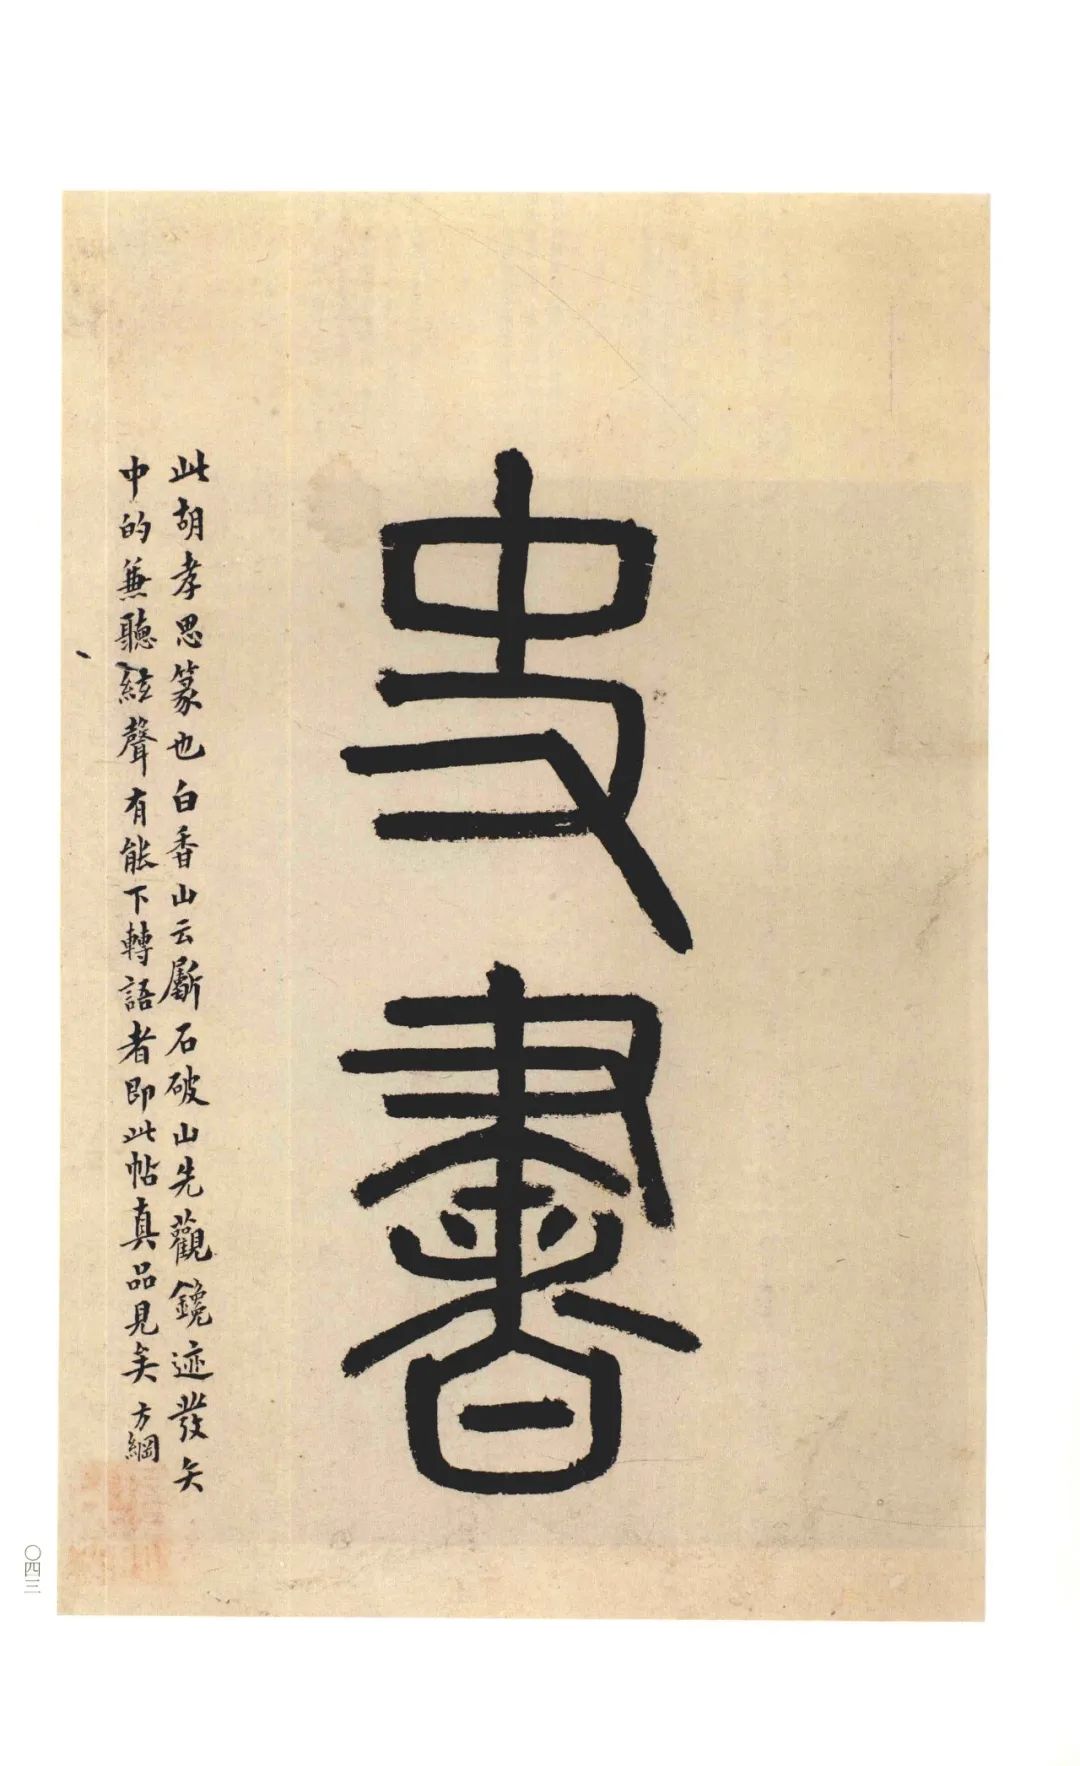 史書
此胡孝思篆也白香山云斸石破山先觀鑱迹發矢
中的兼聽絃聲有能下轉語者即此帖真品見矣 方綱
〇四三